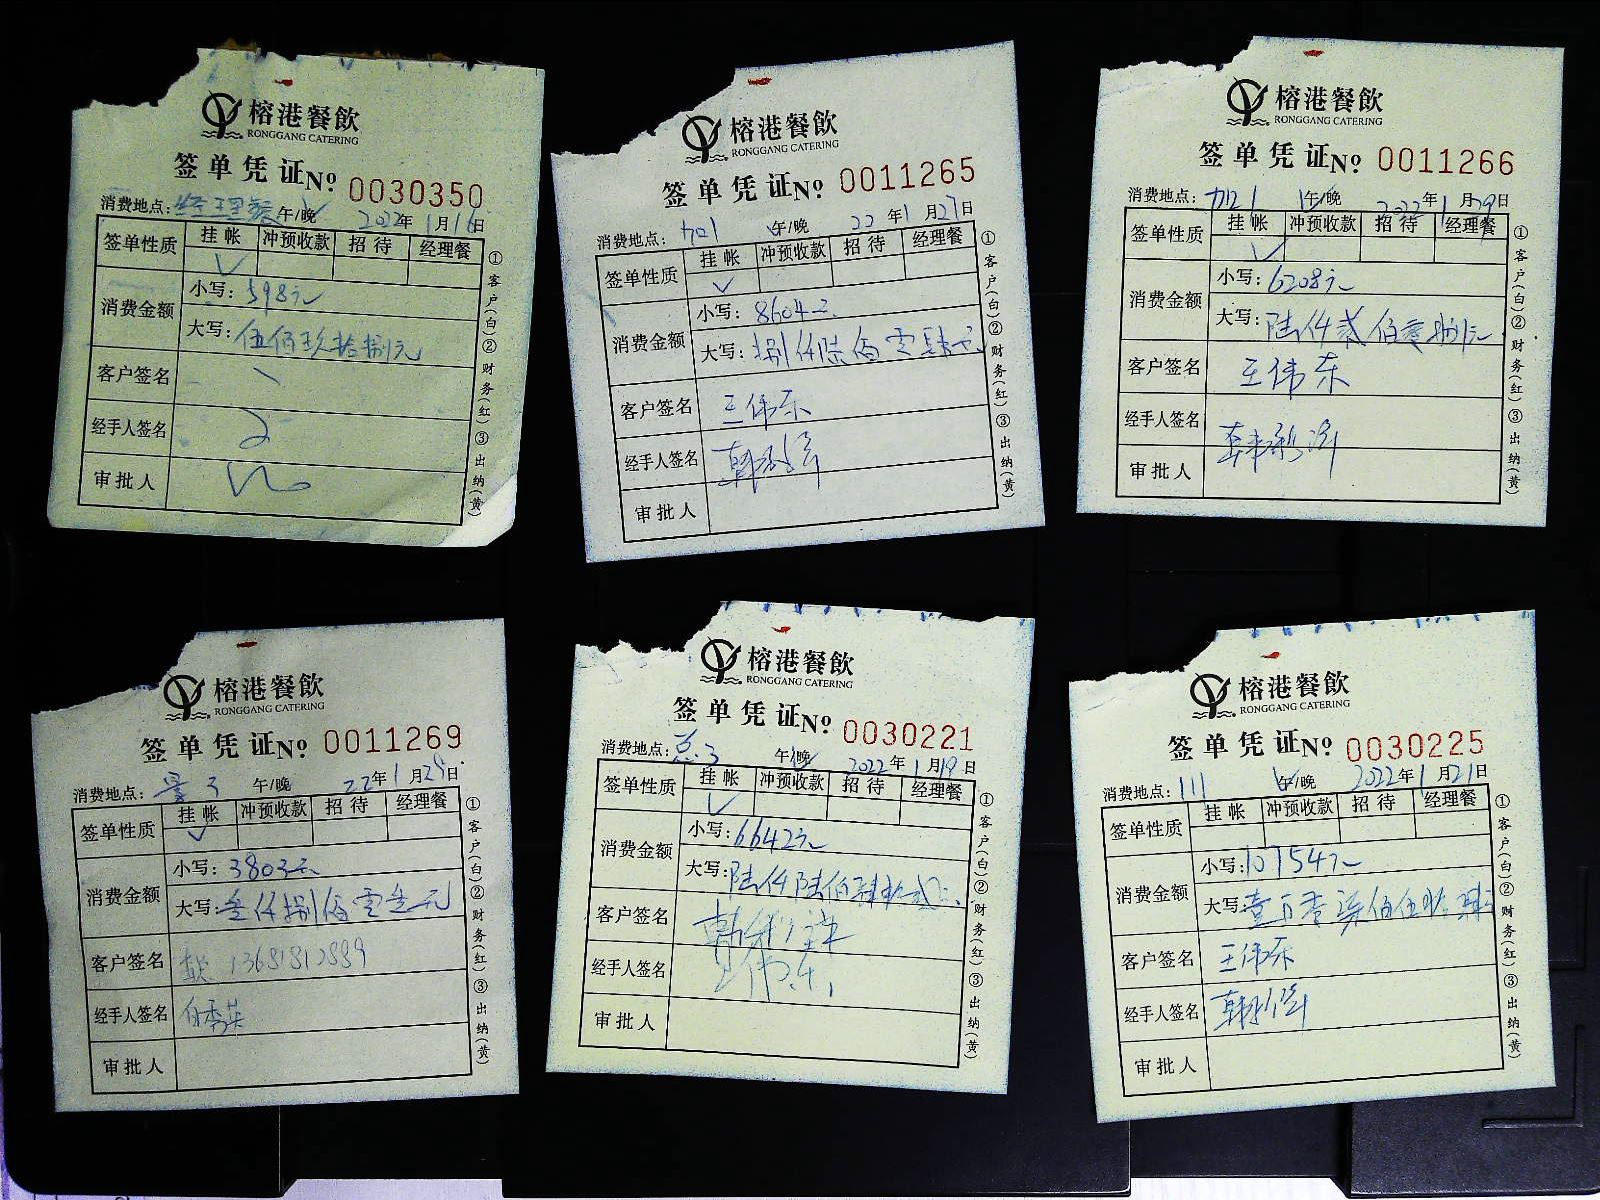 榕港餐飲
RONGGANG CATERING
签单凭证№ 0030350
消费地点：经理餐 午/晚 2022年1月16日
签单性质 挂帐 冲预收款 招待 经理餐
✓
消费金额 小写：598元
大写：伍佰玖拾捌元
客户签名
经手人签名
审批人
①客户(白)②财务(红)③出纳(黄)
榕港餐飲
RONGGANG CATERING
签单凭证№ 0011265
消费地点： 午/晚 22年1月27日
签单性质 挂帐 冲预收款 招待 经理餐
✓
消费金额 小写：8604元
大写：捌仟陆佰零肆元
客户签名 王伟东
经手人签名
审批人
①客户(白)②财务(红)③出纳(黄)
榕港餐飲
RONGGANG CATERING
签单凭证№ 0011266
消费地点： 午/晚 2022年1月29日
签单性质 挂帐 冲预收款 招待 经理餐
✓
消费金额 小写：6208元
大写：陆仟贰佰零捌元
客户签名 王伟东
经手人签名
审批人
①客户(白)②财务(红)③出纳(黄)
榕港餐飲
RONGGANG CATERING
签单凭证№ 0011269
消费地点： 午/晚 22年1月29日
签单性质 挂帐 冲预收款 招待 经理餐
✓
消费金额 小写：3803元
大写：叁仟捌佰零叁元
客户签名 13681812889
经手人签名 白秀英
审批人
①客户(白)②财务(红)③出纳(黄)
榕港餐飲
RONGGANG CATERING
签单凭证№ 0030221
消费地点：总3 午/晚 2022年1月19日
签单性质 挂帐 冲预收款 招待 经理餐
✓
消费金额 小写：6642元
大写：陆仟陆佰肆拾贰元
客户签名
经手人签名 王伟东
审批人
①客户(白)②财务(红)③出纳(黄)
榕港餐飲
RONGGANG CATERING
签单凭证№ 0030225
消费地点：111 午/晚 2022年1月21日
签单性质 挂帐 冲预收款 招待 经理餐
消费金额 小写：10754元
大写：壹万零柒佰伍拾肆元
客户签名 王伟东
经手人签名
审批人
①客户(白)②财务(红)③出纳(黄)